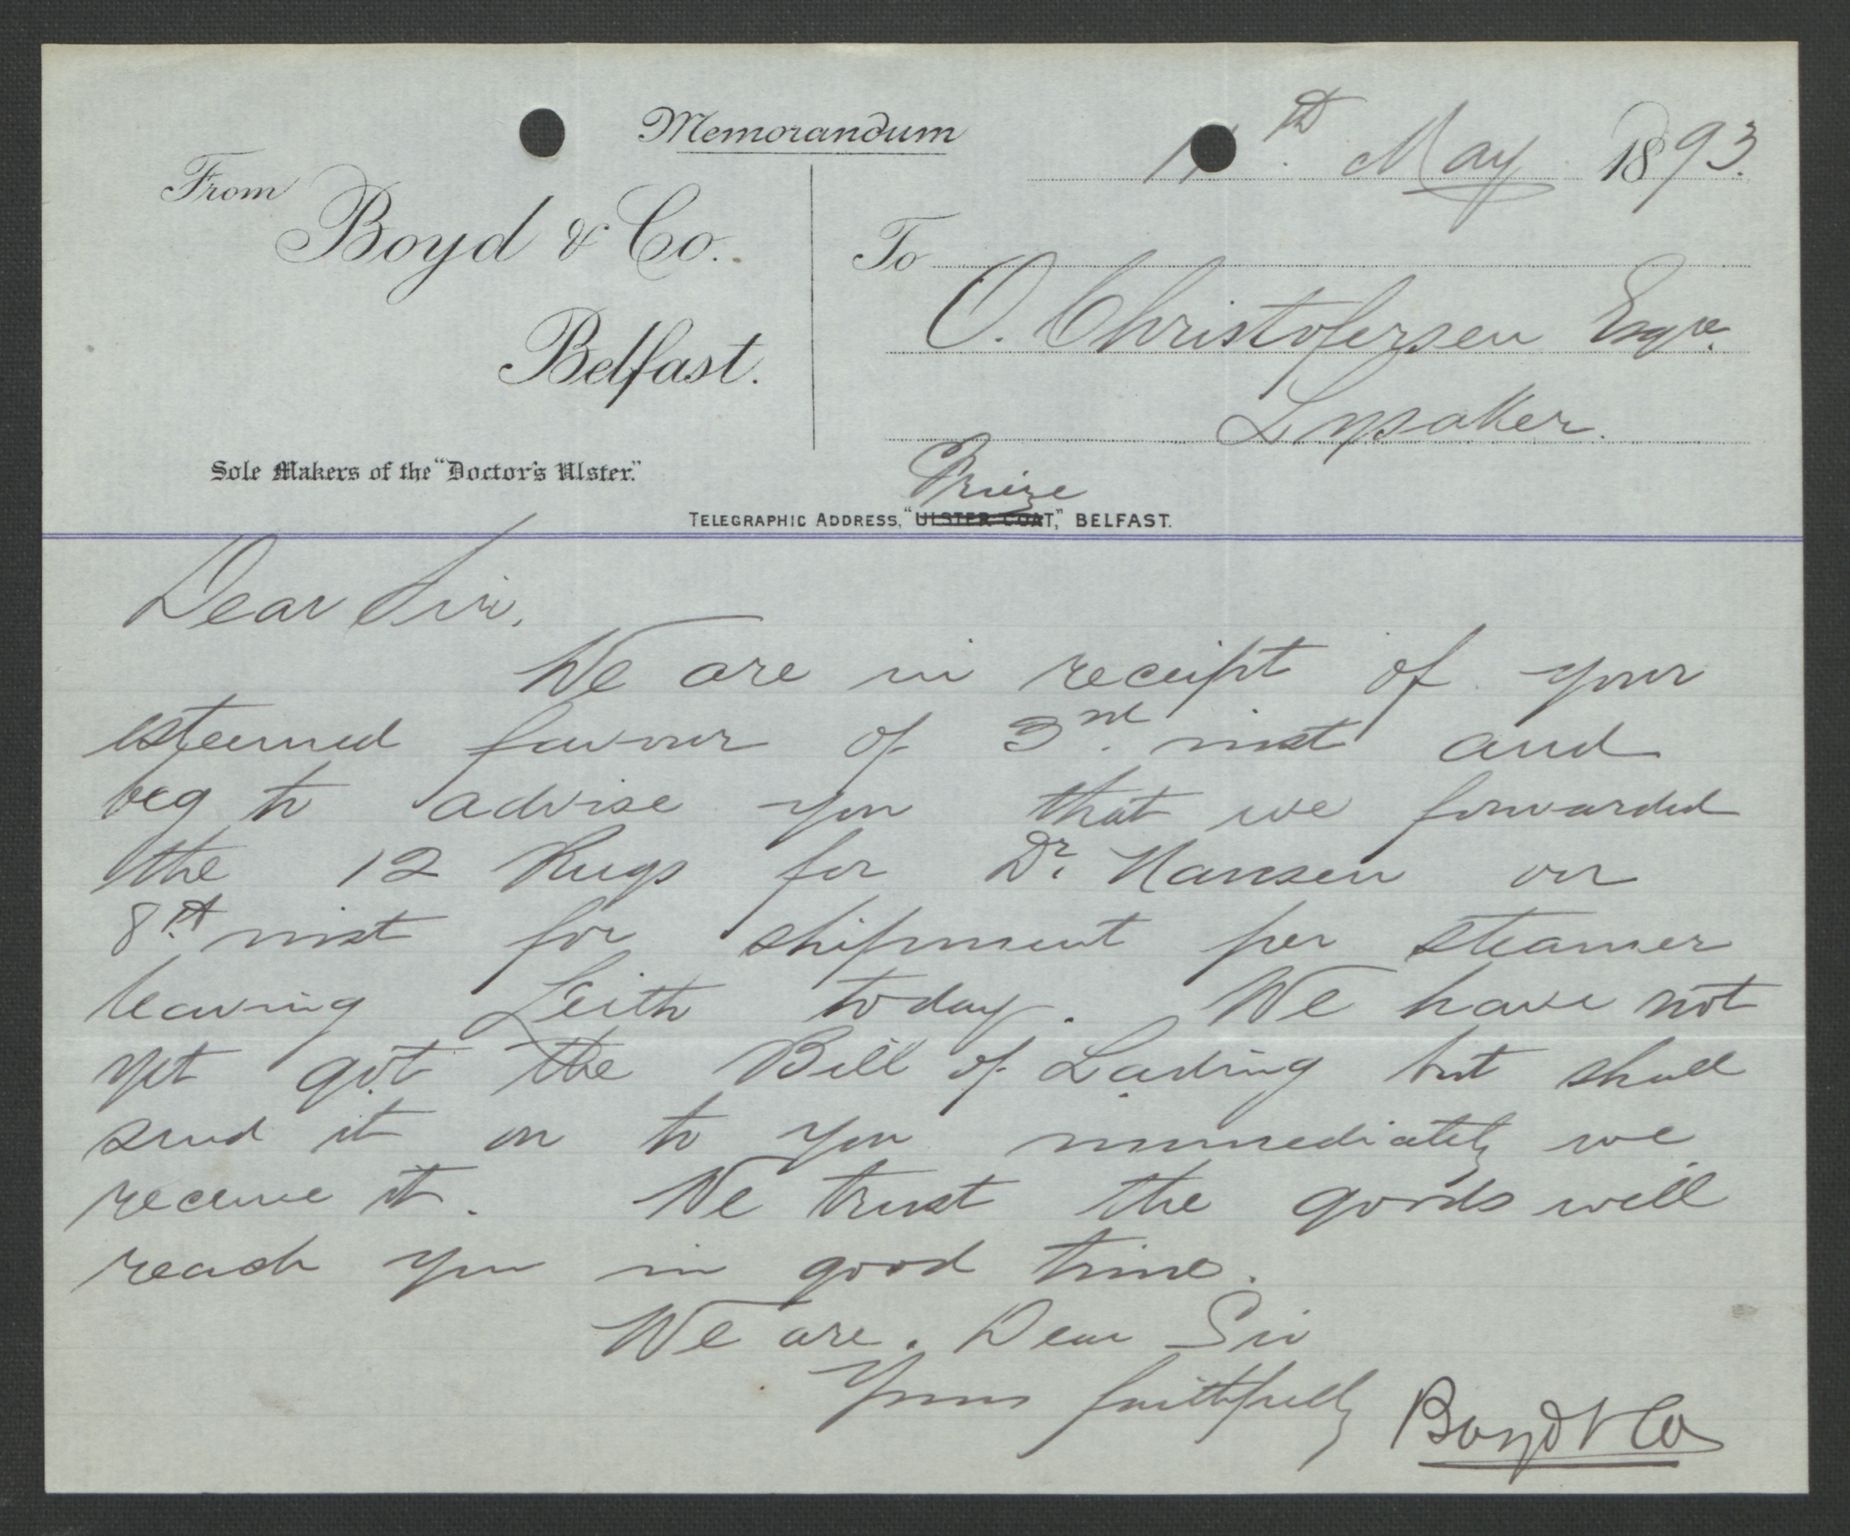 Memorandum
11th May 1893.
From
Boyd & Co.
Belfast.
To
O. Christofersen Esqre.
Lysaker.
Sole Makers of the "Doctor's Ulster."
Prieze
TELEGRAPHIC ADDRESS, "ULSTER COAT," BELFAST.
Dear Sir,
We are in receipt of your
esteemed favour of 3rd. inst and
beg to advise you that we forwarded
the 12 Rugs for Dr. Nansen on
8th. inst for shipment per steamer
leaving Leith today. We have not
yet got the Bill of Lading but shall
send it on to you immediately we
receive it. We trust the goods will
reach you in good time.
We are. Dear Sir
Yours faithfully
Boyd & Co